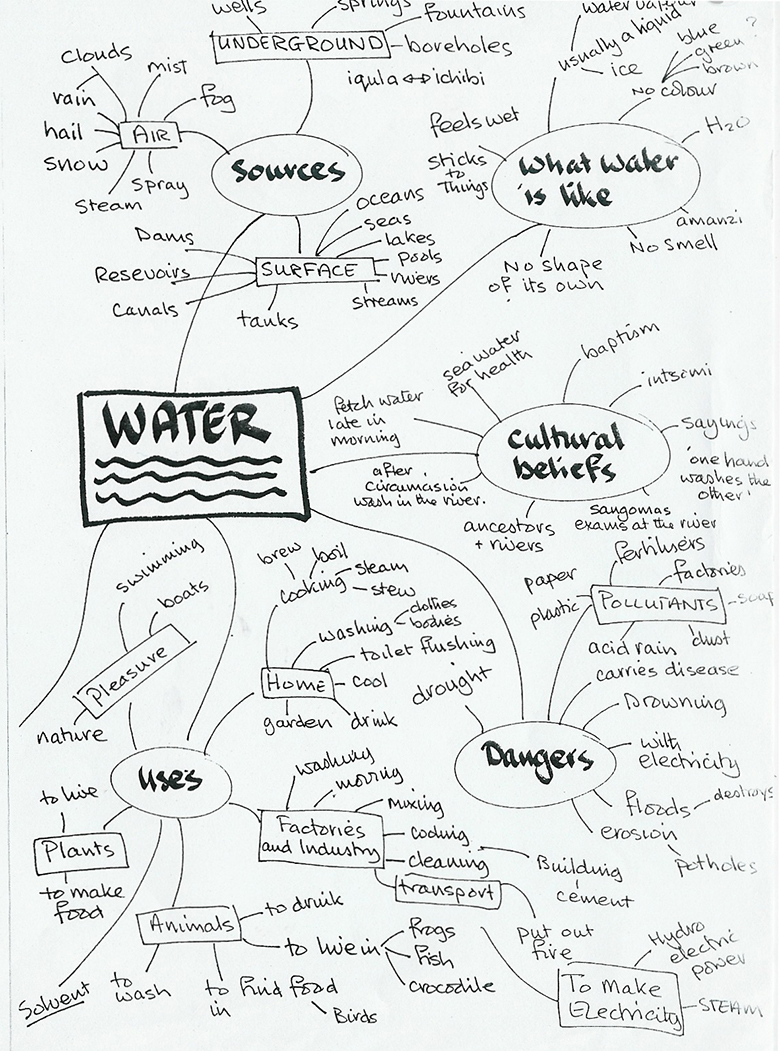 wells
springs
fountains
UNDERGROUND
boreholes
iqula ↔ ichibi
clouds
mist
rain
fog
hail
AIR
snow
Steam
Spray
Sources
oceans
seas
lakes
pools
rivers
streams
SURFACE
Dams
Resevoirs
Canals
tanks
water vapour
usually a liquid
ice
blue
green?
brown
No colour
H2O
feels wet
Sticks
to
Things
What water
is like
amanzi
No smell
No shape
of its own
WATER
sea water
for health
baptism
intsomi
Fetch water
late in
morning
sayings
'one hand
washes the
other'
Cultural
beliefs
after
circumasion
wash in the river.
ancestors
+ rivers
Sangomas
exams at the river
swimming
boats
Pleasure
nature
brew
boil
steam
stew
cooking
washing
clothes
bodies
toilet flushing
HOME
cool
garden
drink
fertilisers
factories
paper
plastic
POLLUTANTS
soap
acid rain
dust
drought
carries disease
Drowning
Dangers
with
electricity
floods
destroys
erosion
potholes
uses
to live
Plants
to make
food
washing
mixing
cooling
cleaning
Factories
and Industry
transport
Building
cement
put out
fire
Animals
to drink
to live in
frogs
fish
crocodile
to
wash
to find food
in
Birds
Solvent
Hydro
electric
power
To Make
Electricity
STEAM